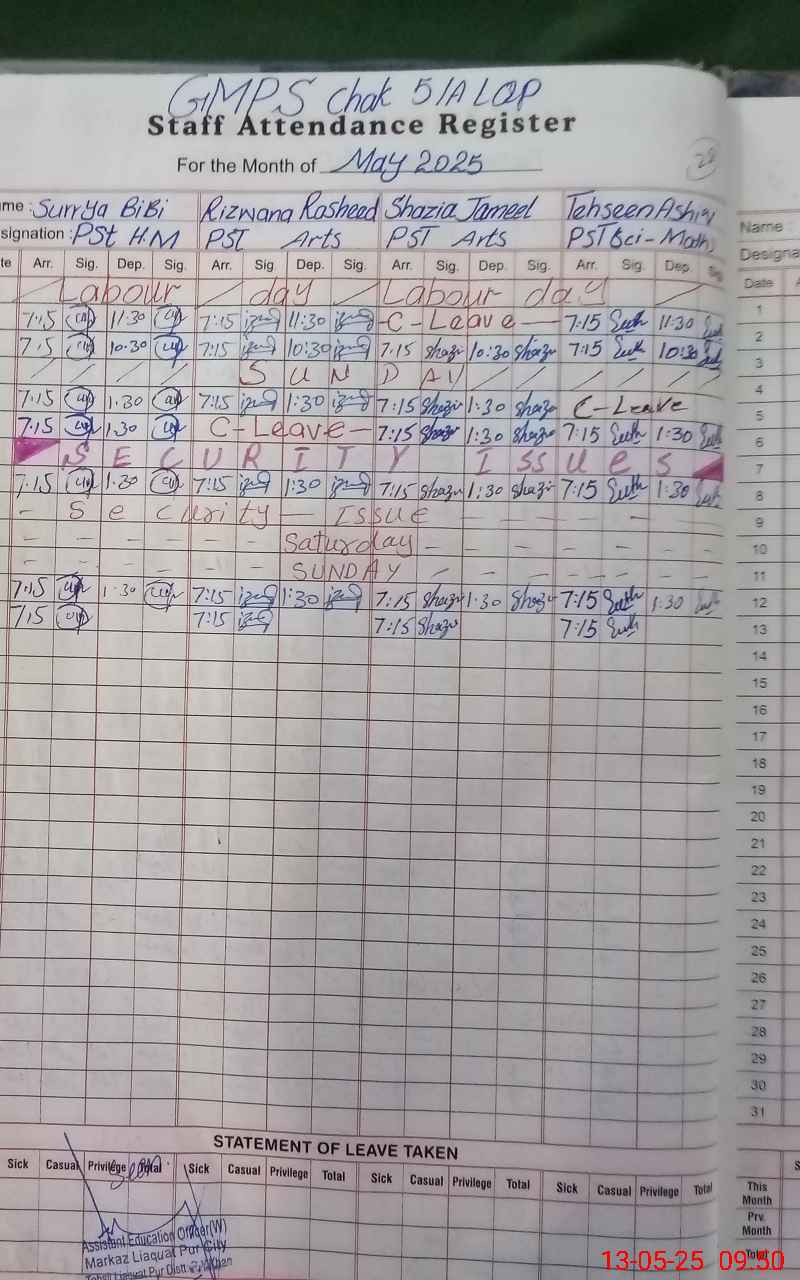 GMPS Chak 5/A LQP
Staff Attendance Register
For the Month of May 2025
me : Surrya BiBi Rizwana Rasheed Shazia Jameel Tehseen Ashiq
signation : PSt H.M PST Arts PST Arts PST Sci-Math
te Arr. Sig. Dep. Sig. Arr. Sig. Dep. Sig. Arr. Sig. Dep. Sig. Arr. Sig. Dep. Sig
Labour day Labour day
7:15 11:30 7:15 11:30 C-Leave 7:15 11:30
7:15 10:30 7:15 10:30 7:15 Shazi 10:30 Shazi 7:15 10:30
SUNDAY
7:15 1:30 7:15 1:30 7:15 Shazi 1:30 Shazi C-Leave
7:15 1:30 C-Leave 7:15 Shazi 1:30 Shazi 7:15 1:30
SECURITY ISSUES
7:15 1:30 7:15 1:30 7:15 Shazi 1:30 Shazi 7:15 1:30
Security Issue
Saturday
SUNDAY
7:15 1:30 7:15 1:30 7:15 Shazi 1:30 Shazi 7:15 1:30
7:15 7:15 7:15 Shazi 7:15
Name :
Designa
Date
1
2
3
4
5
6
7
8
9
10
11
12
13
14
15
16
17
18
19
20
21
22
23
24
25
26
27
28
29
30
31
STATEMENT OF LEAVE TAKEN
Sick Casual Privilege Total Sick Casual Privilege Total Sick Casual Privilege Total Sick Casual Privilege Total
This Month
Prv. Month
Total
Assistant Education Officer(W)
Markaz Liaquat Pur City
13-05-25 09:50